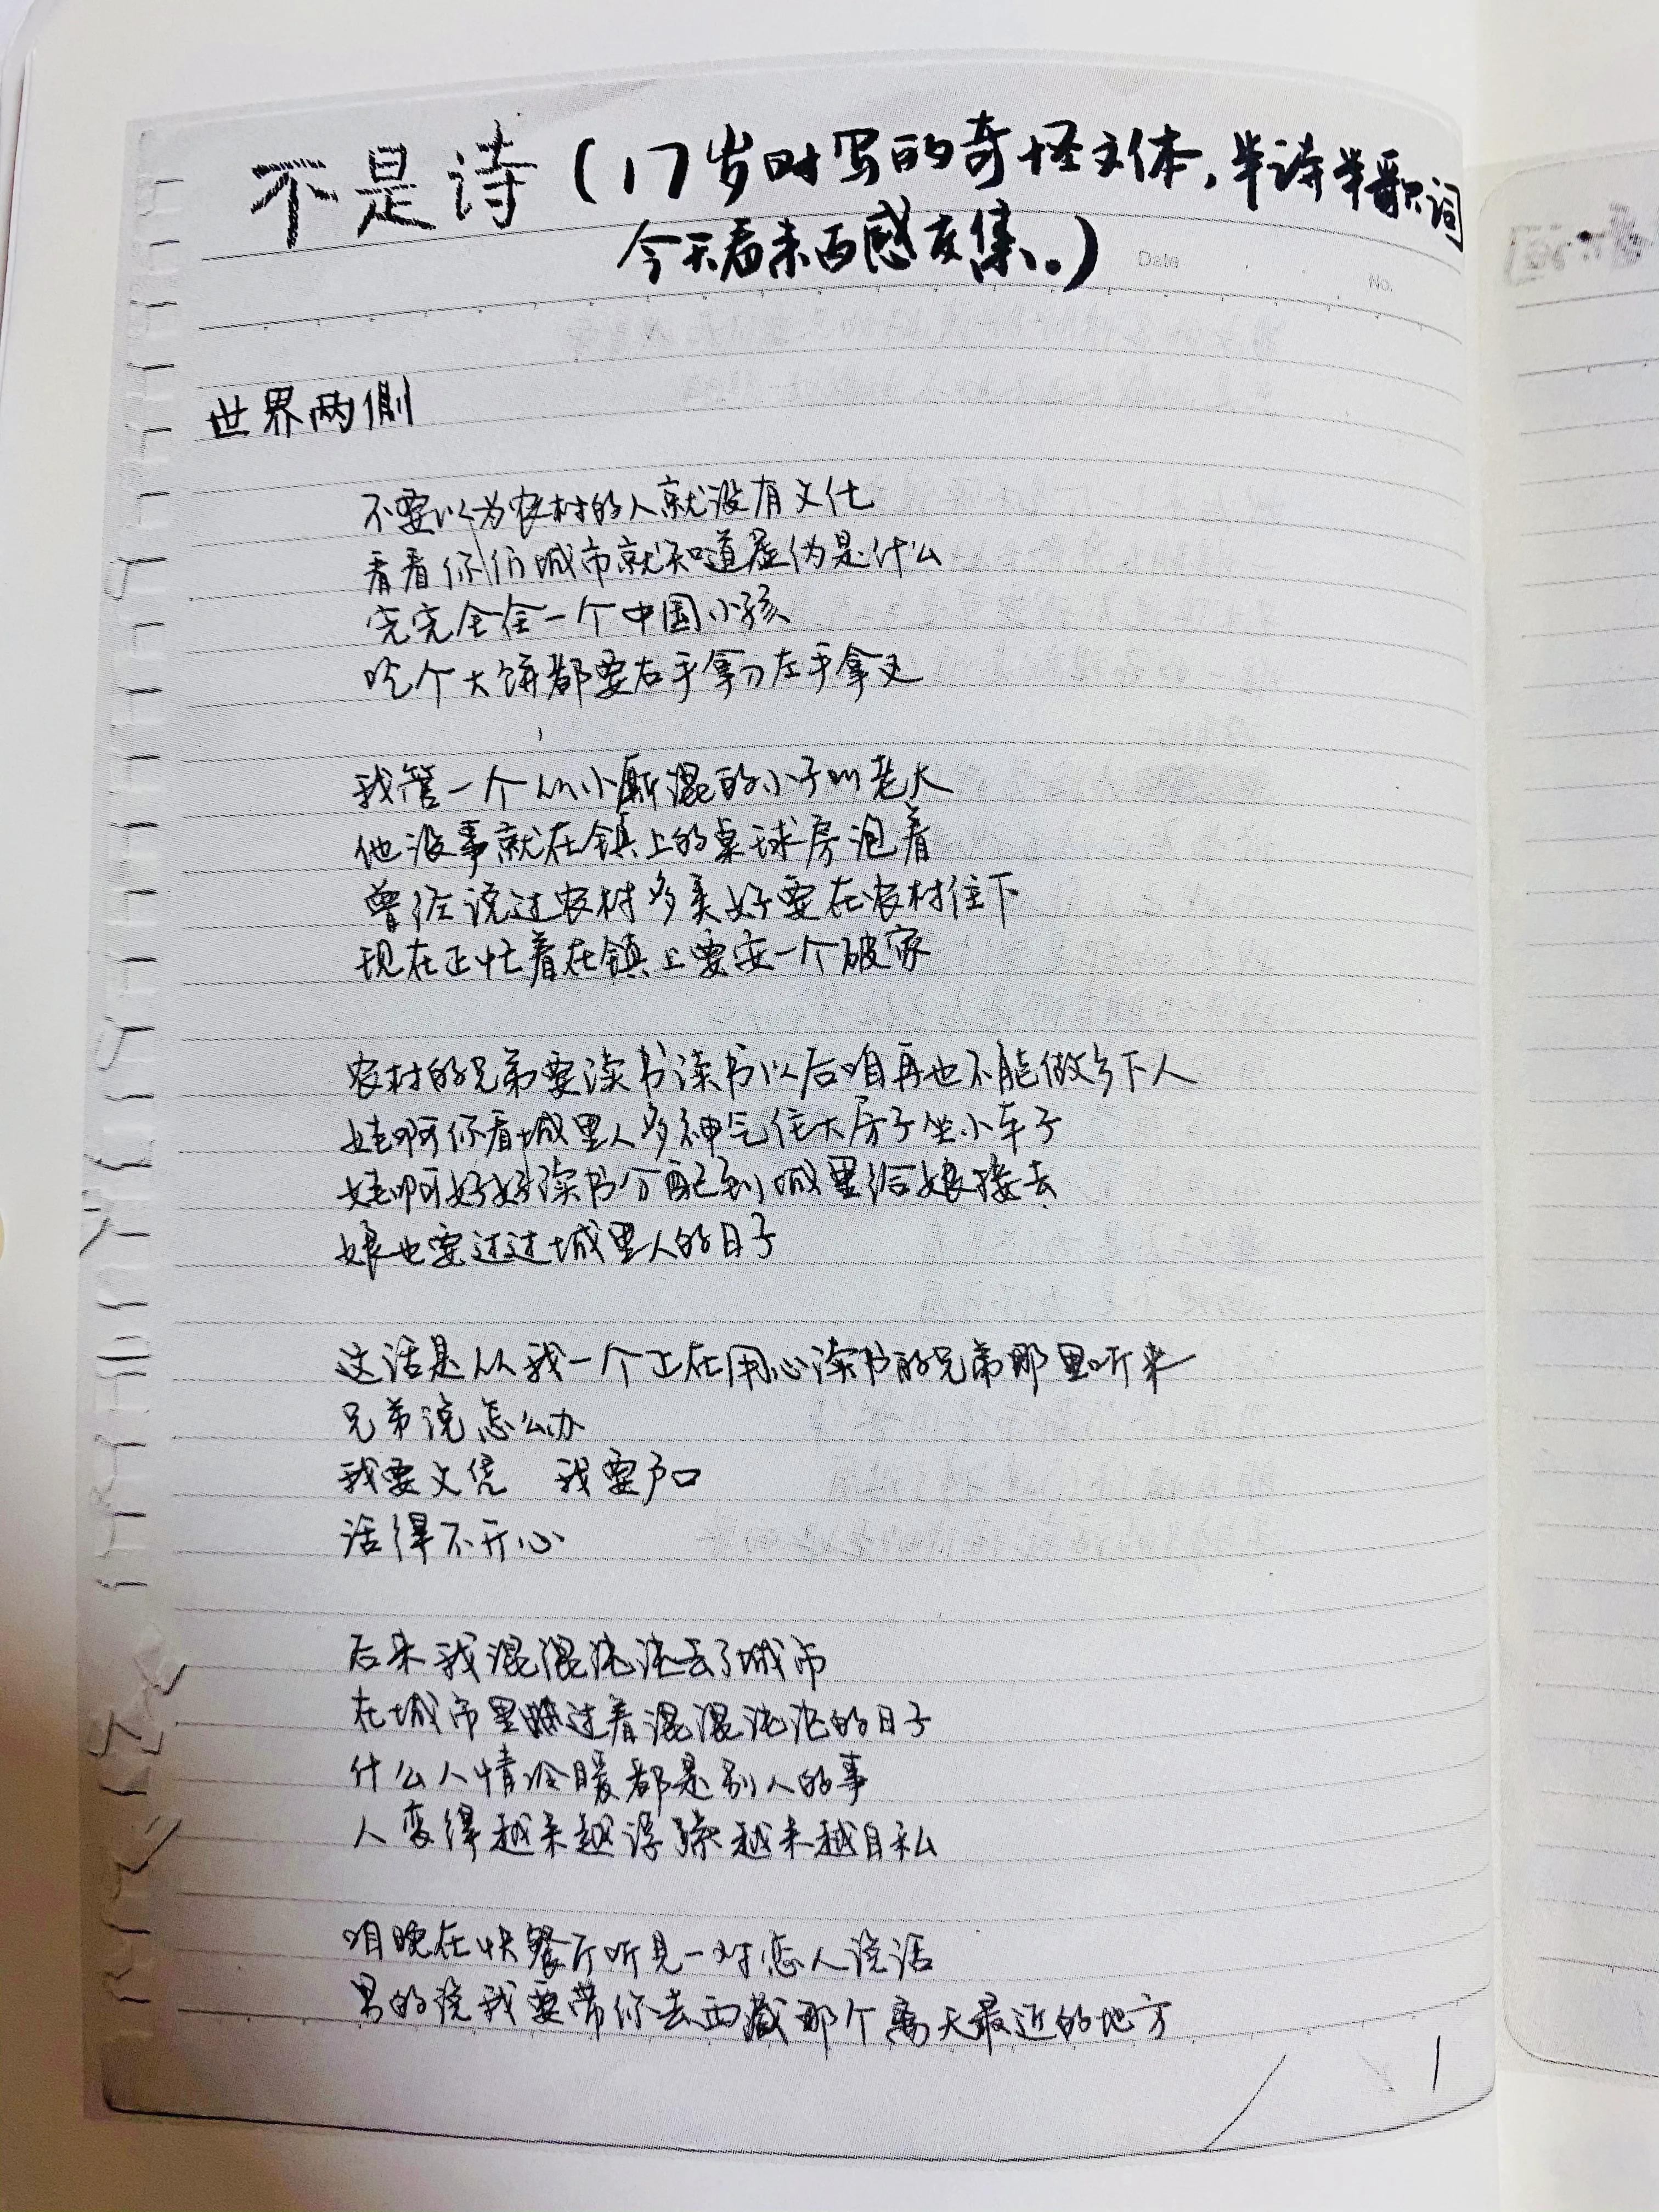 不是诗(17岁时写的奇怪文体,半诗半歌词
今天看来百感交集。)
Date
No.
世界两侧
不要以为农村的人就没有文化
看看你们城市就知道虚伪是什么
完完全全一个中国小孩
吃个大饼都要右手拿刀左手拿叉
我管一个从小厮混的小子叫老大
他没事就在镇上的桌球房泡着
曾经说过农村多美好要在农村住下
现在正忙着在镇上要安一个破家
农村的兄弟要读书读书以后咱再也不能做乡下人
娃啊你看城里人多神气住大房子坐小车子
娃啊好好读书分配到城里给娘接去
娘也要过过城里人的日子
这话是从我一个正在用心读书的兄弟那里听来
兄弟说怎么办
我要文凭 我要户口
活得不开心
后来我混混沌沌去了城市
在城市里过着混混沌沌的日子
什么人情冷暖都是别人的事
人变得越来越浮躁越来越自私
咱晚在快餐厅听见一对恋人说话
男的说我要带你去西藏那个离天最近的地方
1